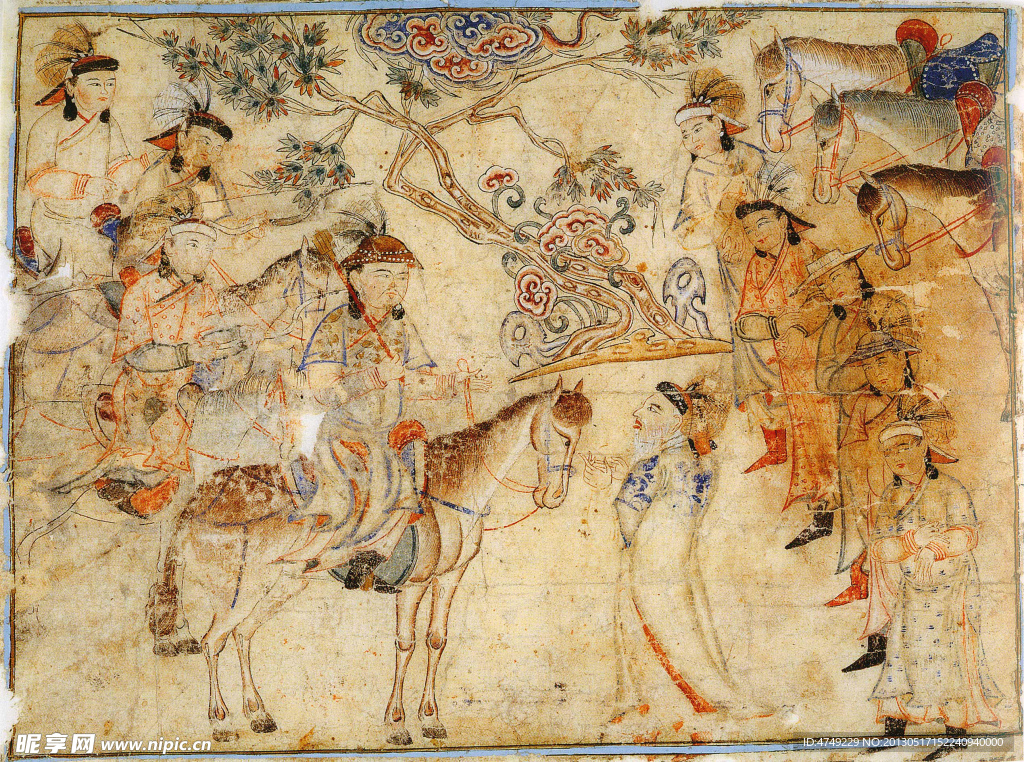 昵享网 www.nipic.cn
ID:4749229 NO:20130517152240940000